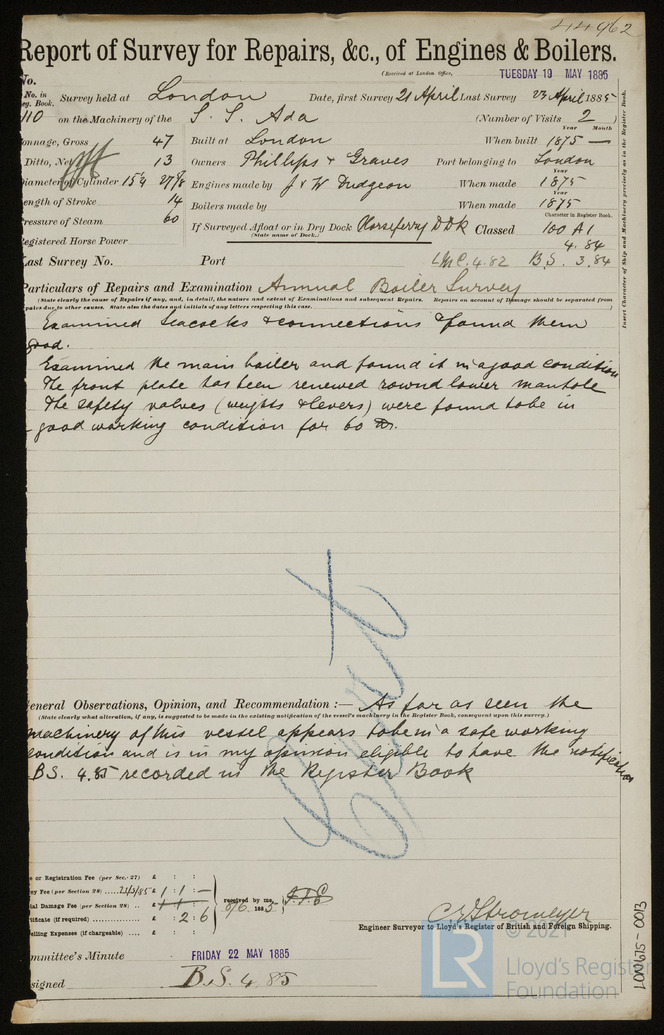 44962
Report of Survey for Repairs, &c., of Engines & Boilers.
(Received at London Office, TUESDAY 19 MAY 1885
No.
No. in Survey held at London Date, first Survey 21 April Last Survey 23 April 1885
eg. Book.
110 on the Machinery of the S. S. Ada (Number of Visits 2 )
Year Month
onnage, Gross 47 Built at London When built 1875 —
Ditto, Net 13 Owners Phillips & Graves Port belonging to London
Year
iameter of Cylinder 15¼ 27⅞ Engines made by J & W Dudgeon When made 1875
Year
ength of Stroke 14 Boilers made by When made 1875
ressure of Steam 60 If Surveyed Afloat or in Dry Dock Horseferry D Dk Classed 100 A1
(State name of Dock.) Character in Register Book.
egistered Horse Power 4.84
ast Survey No. Port LMC. 4.82 B.S. 3.84
Particulars of Repairs and Examination Annual Boiler Survey
(State clearly the cause of Repairs if any, and, in detail, the nature and extent of Examinations and subsequent Repairs. Repairs on account of Damage should be separated from
pairs due to other causes. State also the dates and initials of any letters respecting this case. )
Examined seacocks & connections & found them
good.
Examined the main boiler and found it in a good condition
The front plate has been renewed round lower manhole
The safety valves (weights & levers) were found to be in
good working condition for 60
Insert Character of Ship and Machinery precisely as in the Register Book.
General Observations, Opinion, and Recommendation :— As far as seen the
(State clearly what alteration, if any, is suggested to be made in the existing notification of the vessel's machinery in the Register Book, consequent upon this survey.)
machinery of this vessel appears to be in a safe working
condition and is in my opinion eligible to have the notification
B.S. 4.85 recorded in the Register Book
e or Registration Fee (per Sec. 27) £ : :
ey Fee (per Section 28) 21/5/85 £ 1 : 1 : —
ial Damage Fee (per Section 28) £ : :
rtificate (if required) £ : 2 : 6
elling Expenses (if chargeable) £ : :
received by me,
6/6. 1885
C E Stromeyer
Engineer Surveyor to Lloyd's Register of British and Foreign Shipping.
ommittee's Minute FRIDAY 22 MAY 1885
signed B.S. 4.85
LON615-0013
LR
© 2021
Lloyd's Register
Foundation